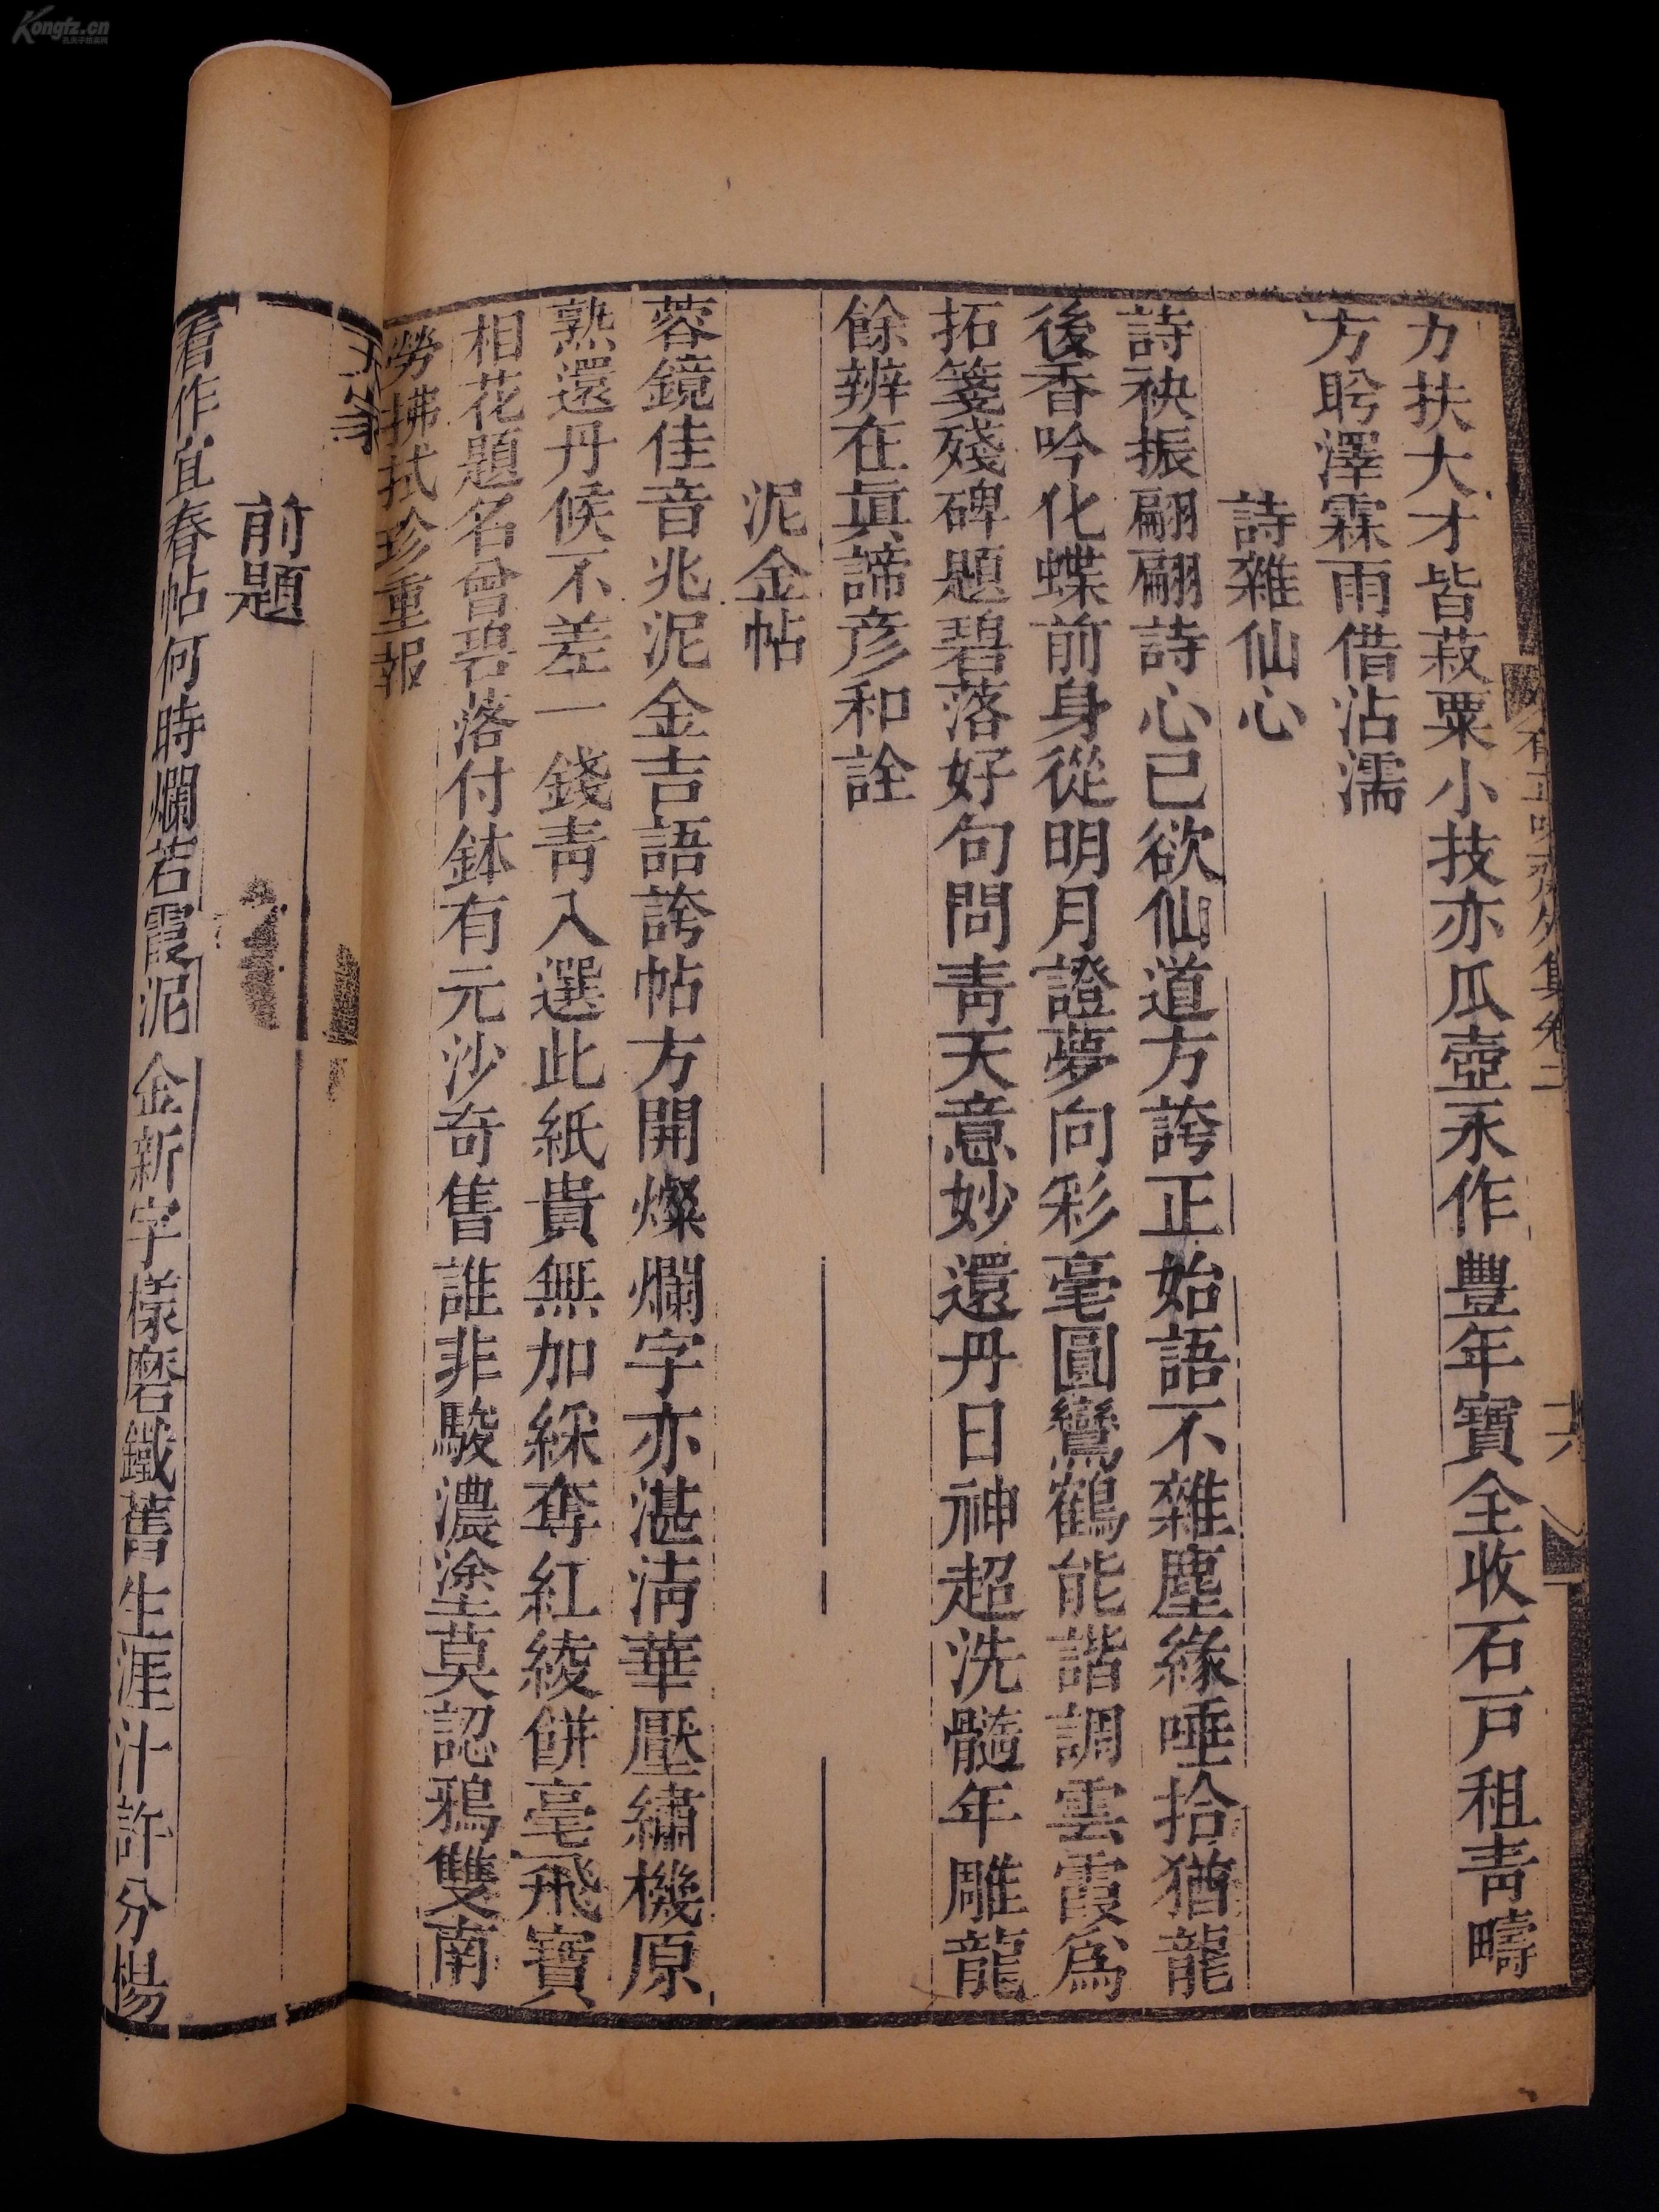 力扶大才皆菽粟小技亦瓜壺永作豐年寶全收石戸租青疇
方盻澤霖雨借沾濡
詩雜仙心
詩袂振翩翩詩心已欲仙道方誇正始語不雜塵緣唾拾猶龍
後香吟化蝶前身從明月證夢向彩毫圓鸞鶴能諧調雲霞爲
拓箋殘碑題碧落好句問青天意妙還丹日神超洗髓年雕龍
餘辨在眞諦彦和詮
泥金帖
蓉鏡佳音兆泥金吉語誇帖方開燦爛字亦湛淸華壓繡機原
熟還丹候不差一錢青入選此紙貴無加綵奪紅綾餅毫飛寳
相花題名曾碧落付鉢有元沙奇售誰非駿濃塗莫認鴉雙南
勞拂拭珍重報
家
前題
看作宜春帖何時爛若霞泥金新字樣磨鐵舊生涯汁許分楊
卷二
十六
Kongfz.cn